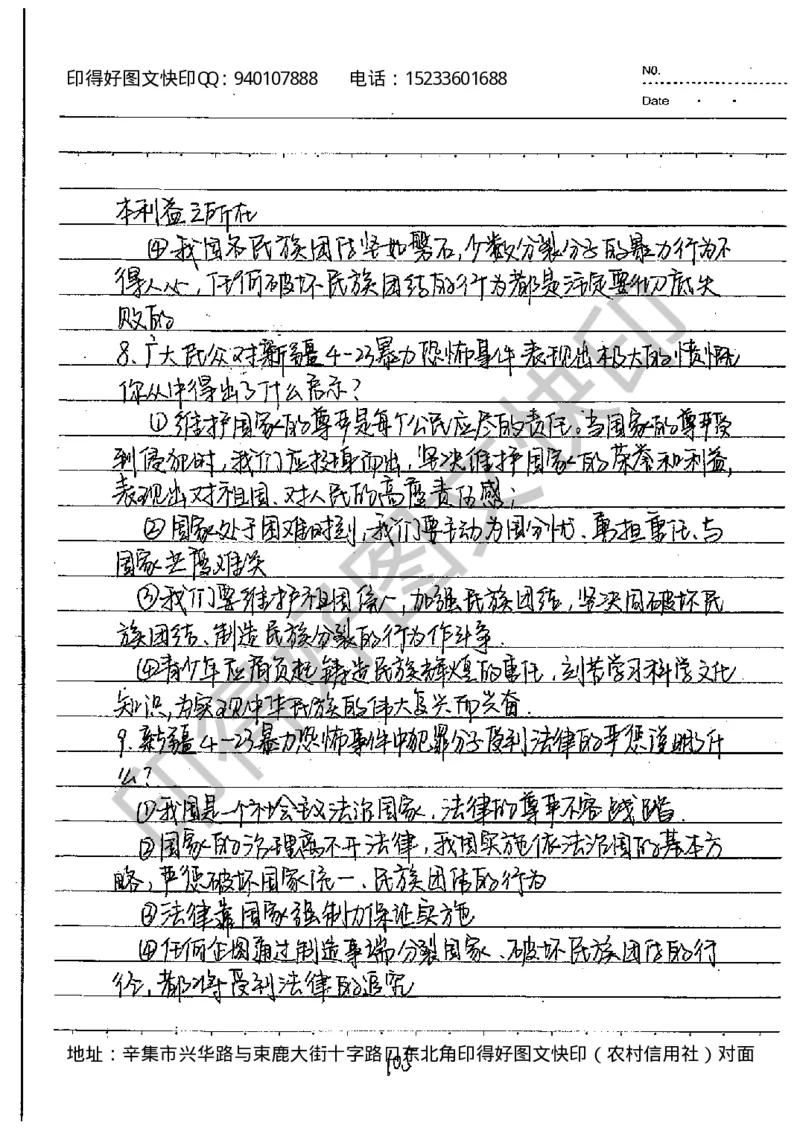 印得好图文快印QQ：940107888 电话：15233601688
No.
Date
本利益之所在
④我国各民族团结坚如磐石，少数分裂分子的暴力行为不
得人心，任何破坏民族团结的行为都是注定要彻底失
败的
8.广大民众对新疆4-23暴力恐怖事件表现出极大的愤慨
你从中得出了什么启示？
①维护国家的尊严是每个公民应尽的责任。当国家的尊严受
到侵犯时，我们应挺身而出，坚决维护国家的荣誉和利益，
表现出对祖国、对人民的高度责任感；
②国家处于困难时刻，我们要主动为国分忧、勇担重任、与
国家共度难关
③我们要维护祖国统一，加强民族团结，坚决同破坏民
族团结、制造民族分裂的行为作斗争.
④青少年应肩负起铸造民族辉煌的重任，刻苦学习科学文化
知识，为实现中华民族的伟大复兴而兴奋.
9.新疆4-23暴力恐怖事件中犯罪分子受到法律的严惩说明了什
么？
①我国是一个社会主义法治国家，法律的尊严不容践踏.
②国家的治理离不开法律，我国实施依法治国的基本方
略，严惩破坏国家统一、民族团结的行为
③法律靠国家强制力保证实施
④任何企图通过制造事端分裂国家、破坏民族团结的行
径，都将受到法律的追究
地址：辛集市兴华路与束鹿大街十字路口东北角印得好图文快印（农村信用社）对面
103
印得好图文快印